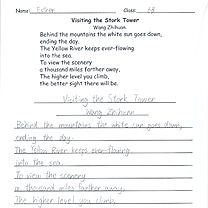 Name: Esther Class: 6B
Visiting the Stork Tower
Wang Zhihuan
Behind the mountains the white sun goes down,
ending the day.
The Yellow River keeps ever-flowing
into the sea.
To view the scenery
a thousand miles farther away,
The higher level you climb,
the better sight there will be.
Visiting the Stork Tower
Wang Zhihuan
Behind the mountains the white sun goes down,
ending the day.
The Yellow River keeps ever-flowing
into the sea.
To view the scenery
a thousand miles farther away,
The higher level you climb,